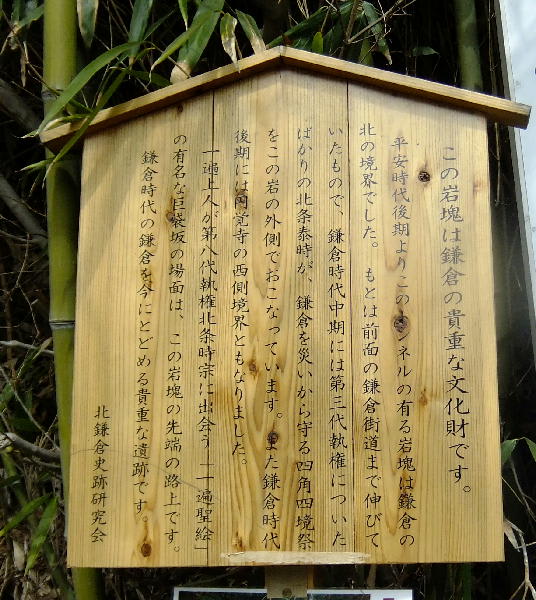 この岩塊は鎌倉の貴重な文化財です。
平安時代後期よりこのトンネルの有る岩塊は鎌倉の
北の境界でした。もとは前面の鎌倉街道まで伸びて
いたもので、鎌倉時代中期には第三代執権についた
ばかりの北条泰時が、鎌倉を災いから守る四角四境祭
をこの岩の外側でおこなっています。また鎌倉時代
後期には円覚寺の西側境界ともなりました。
一遍上人が第八代執権北条時宗に出会う「一遍聖絵」
の有名な巨袋坂の場面は、この岩塊の先端の路上です。
鎌倉時代の鎌倉を今にとどめる貴重な遺跡です。
北鎌倉史跡研究会